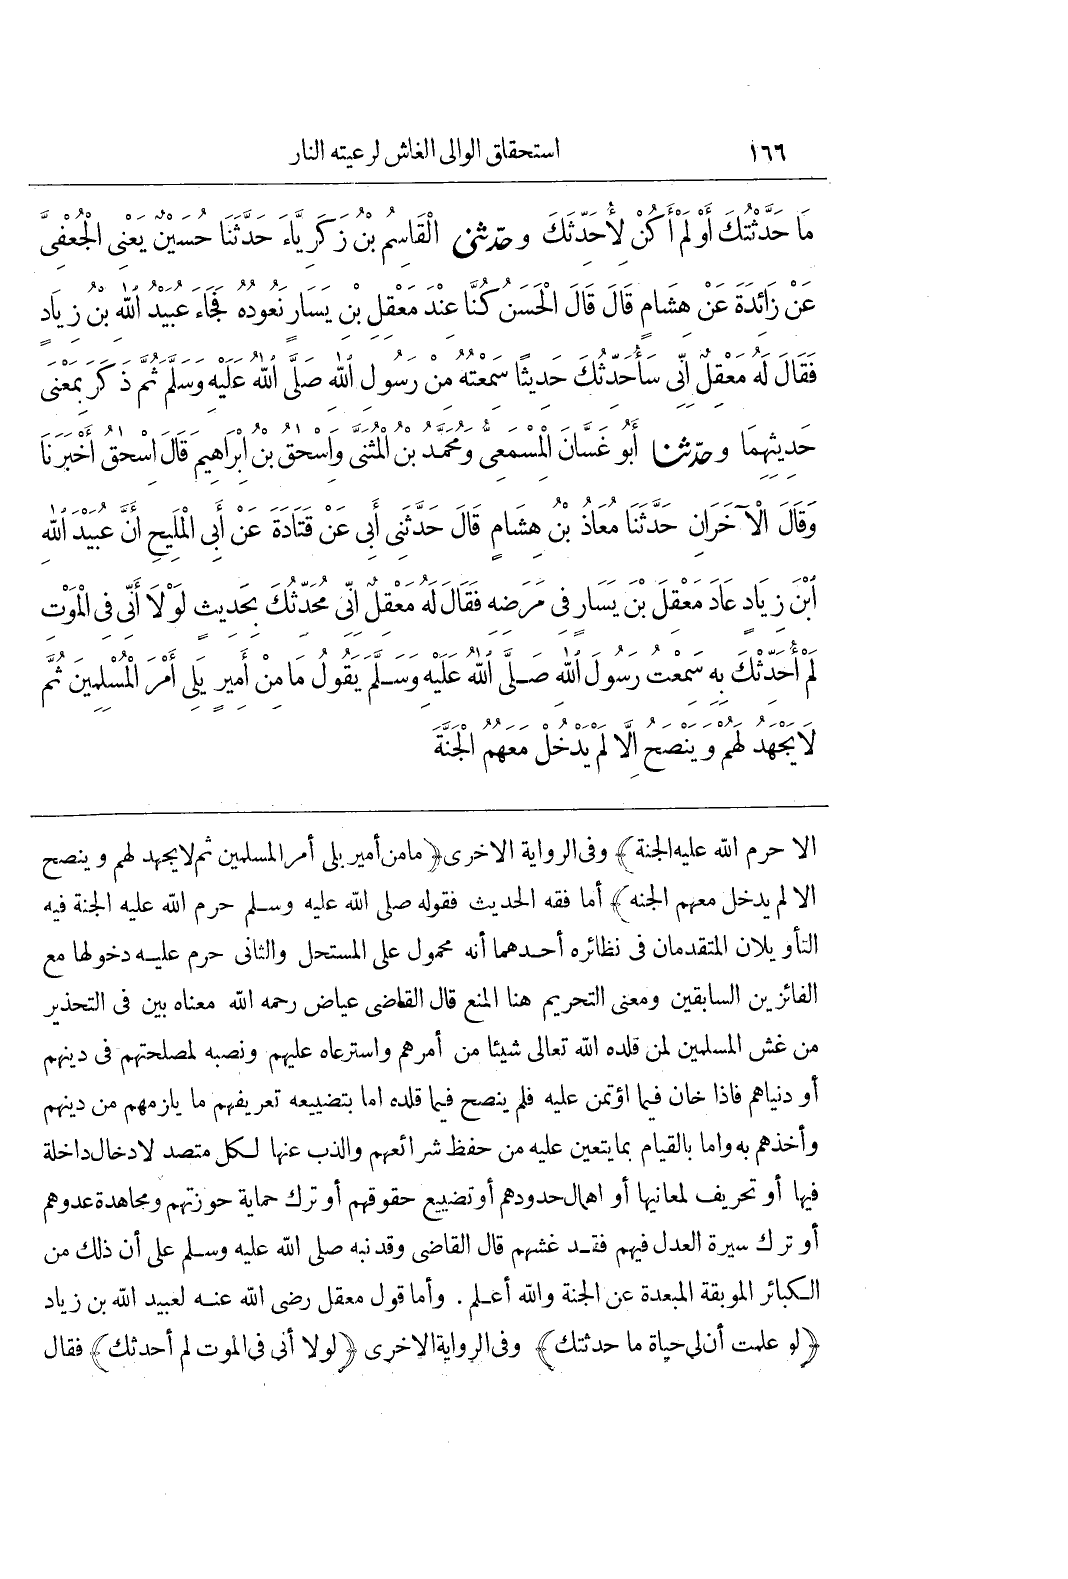 ١٦٦ استحقاق الوالى الغاش لرعيته النار
مَا حَدَّثْتُكَ أَوْ لَمْ أَكُنْ لِأُحَدِّثَكَ وحَدَّثَنِى الْقَاسِمُ بْنُ زَكَرِيَّاءَ حَدَّثَنَا حُسَيْنٌ يَعْنِى الْجُعْفِىَّ
عَنْ زَائِدَةَ عَنْ هِشَامٍ قَالَ قَالَ الْحَسَنُ كُنَّا عِنْدَ مَعْقِلِ بْنِ يَسَارٍ نَعُودُهُ فَجَاءَ عُبَيْدُ اللّٰهِ بْنُ زِيَادٍ
فَقَالَ لَهُ مَعْقِلٌ إِنِّى سَأُحَدِّثُكَ حَدِيثًا سَمِعْتُهُ مِنْ رَسُولِ اللّٰهِ صَلَّى اللّٰهُ عَلَيْهِ وَسَلَّمَ ثُمَّ ذَكَرَ بِمَعْنَى
حَدِيثِهِمَا وحَدَّثَنَا أَبُو غَسَّانَ الْمِسْمَعِىُّ وَمُحَمَّدُ بْنُ الْمُثَنَّى وَإِسْحٰقُ بْنُ إِبْرَاهِيمَ قَالَ إِسْحٰقُ أَخْبَرَنَا
وَقَالَ الْآخَرَانِ حَدَّثَنَا مُعَاذُ بْنُ هِشَامٍ قَالَ حَدَّثَنِى أَبِى عَنْ قَتَادَةَ عَنْ أَبِى الْمَلِيحِ أَنَّ عُبَيْدَ اللّٰهِ
ابْنَ زِيَادٍ عَادَ مَعْقِلَ بْنَ يَسَارٍ فِى مَرَضِهِ فَقَالَ لَهُ مَعْقِلٌ إِنِّى مُحَدِّثُكَ بِحَدِيثٍ لَوْلَا أَنِّى فِى الْمَوْتِ
لَمْ أُحَدِّثْكَ بِهِ سَمِعْتُ رَسُولَ اللّٰهِ صَلَّى اللّٰهُ عَلَيْهِ وَسَلَّمَ يَقُولُ مَا مِنْ أَمِيرٍ يَلِى أَمْرَ الْمُسْلِمِينَ ثُمَّ
لَا يَجْهَدُ لَهُمْ وَيَنْصَحُ إِلَّا لَمْ يَدْخُلْ مَعَهُمُ الْجَنَّةَ
الا حرم الله عليه الجنة﴾ وفى الرواية الاخرى ﴿مامن أمير يلى أمر المسلمين ثم لايجهد لهم وينصح
الا لم يدخل معهم الجنه﴾ أما فقه الحديث فقوله صلى الله عليه وسلم حرم الله عليه الجنة فيه
التأويلان المتقدمان فى نظائره أحدهما أنه محمول على المستحل والثانى حرم عليه دخولها مع
الفائزين السابقين ومعنى التحريم هنا المنع قال القاضى عياض رحمه الله معناه بين فى التحذير
من غش المسلمين لمن قلده الله تعالى شيئا من أمرهم واسترعاه عليهم ونصبه لمصلحتهم فى دينهم
أو دنياهم فاذا خان فيما اؤتمن عليه فلم ينصح فيما قلده اما بتضييعه تعريفهم ما يلزمهم من دينهم
وأخذهم به واما بالقيام بمايتعين عليه من حفظ شرائعهم والذب عنها لكل متصد لادخال داخلة
فيها أو تحريف لمعانيها أو اهمال حدودهم أو تضييع حقوقهم أو ترك حماية حوزتهم ومجاهدة عدوهم
أو ترك سيرة العدل فيهم فقد غشهم قال القاضى وقد نبه صلى الله عليه وسلم على أن ذلك من
الكبائر الموبقة المبعدة عن الجنة والله أعلم . وأما قول معقل رضى الله عنه لعبيد الله بن زياد
﴿لو علمت أن لى حياة ما حدثتك﴾ وفى الرواية الاخرى ﴿لولا أنى فى الموت لم أحدثك﴾ فقال